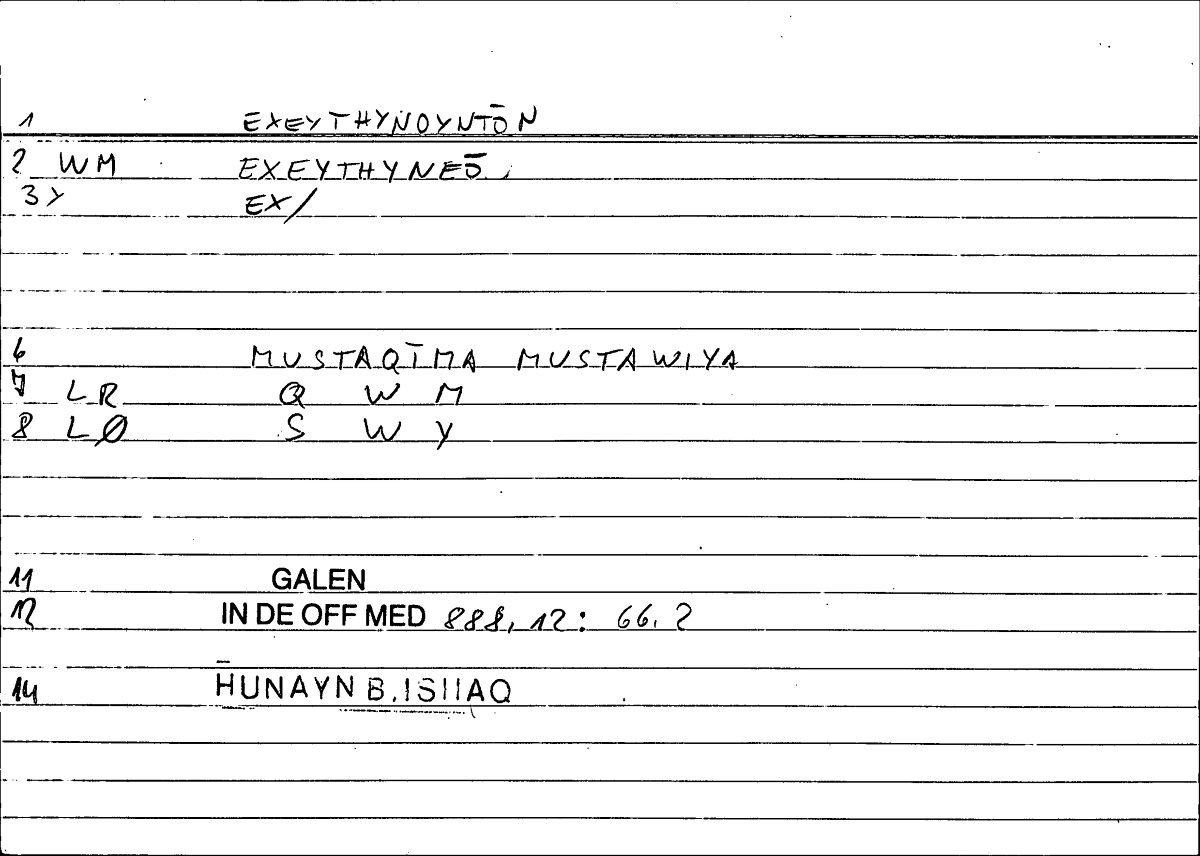 1 EXEYTHYNOYNTŌN
2 WM EXEYTHYNEŌ
3 Y EX/
6 MUSTAQĪMA MUSTAWIYA
7 LR Q W M
8 LØ S W Y
11 GALEN
12 IN DE OFF MED 888, 12: 66. 2
14 H̄UNAYN B. ISHAQ